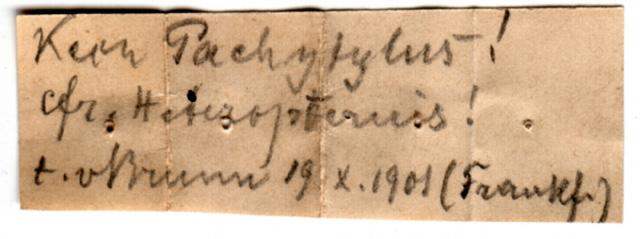 Kein Pachytylus!
cfr. Heteropternis!
t. v Brunn 19 X. 1901 (Frankf.)